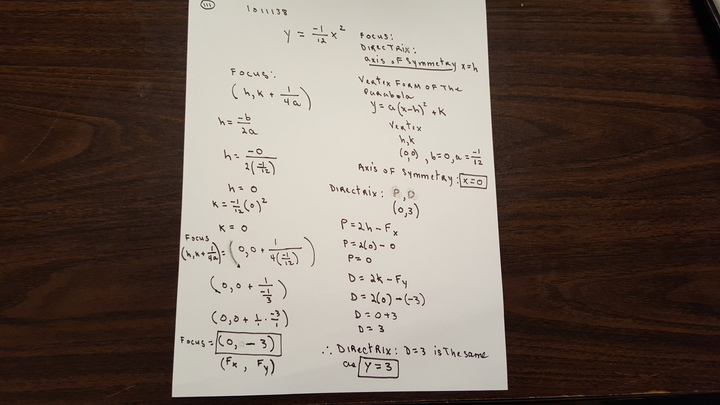 111
1011138
y = -1/12 x²
Focus:
Directrix:
axis of symmetry x=h
Vertex Form of the
parabola
y = a(x-h)² + k
Vertex
h,k
(0,0) , b=0, a = -1/12
Axis of symmetry: x=0
Focus:
(h, k + 1/4a)
h = -b/2a
h = -0/2(-1/12)
h = 0
k = -1/12 (0)²
k = 0
Focus
(h, k + 1/4a) = (0, 0 + 1/4(-1/12))
(0, 0 + 1/-1/3)
(0, 0 + 1/1 · -3/1)
Focus = (0, -3)
(Fx , Fy)
Directrix: P, D
(0,3)
P = 2h - Fx
P = 2(0) - 0
P = 0
D = 2k - Fy
D = 2(0) - (-3)
D = 0+3
D = 3
∴ Directrix: D=3 is the same
as y = 3